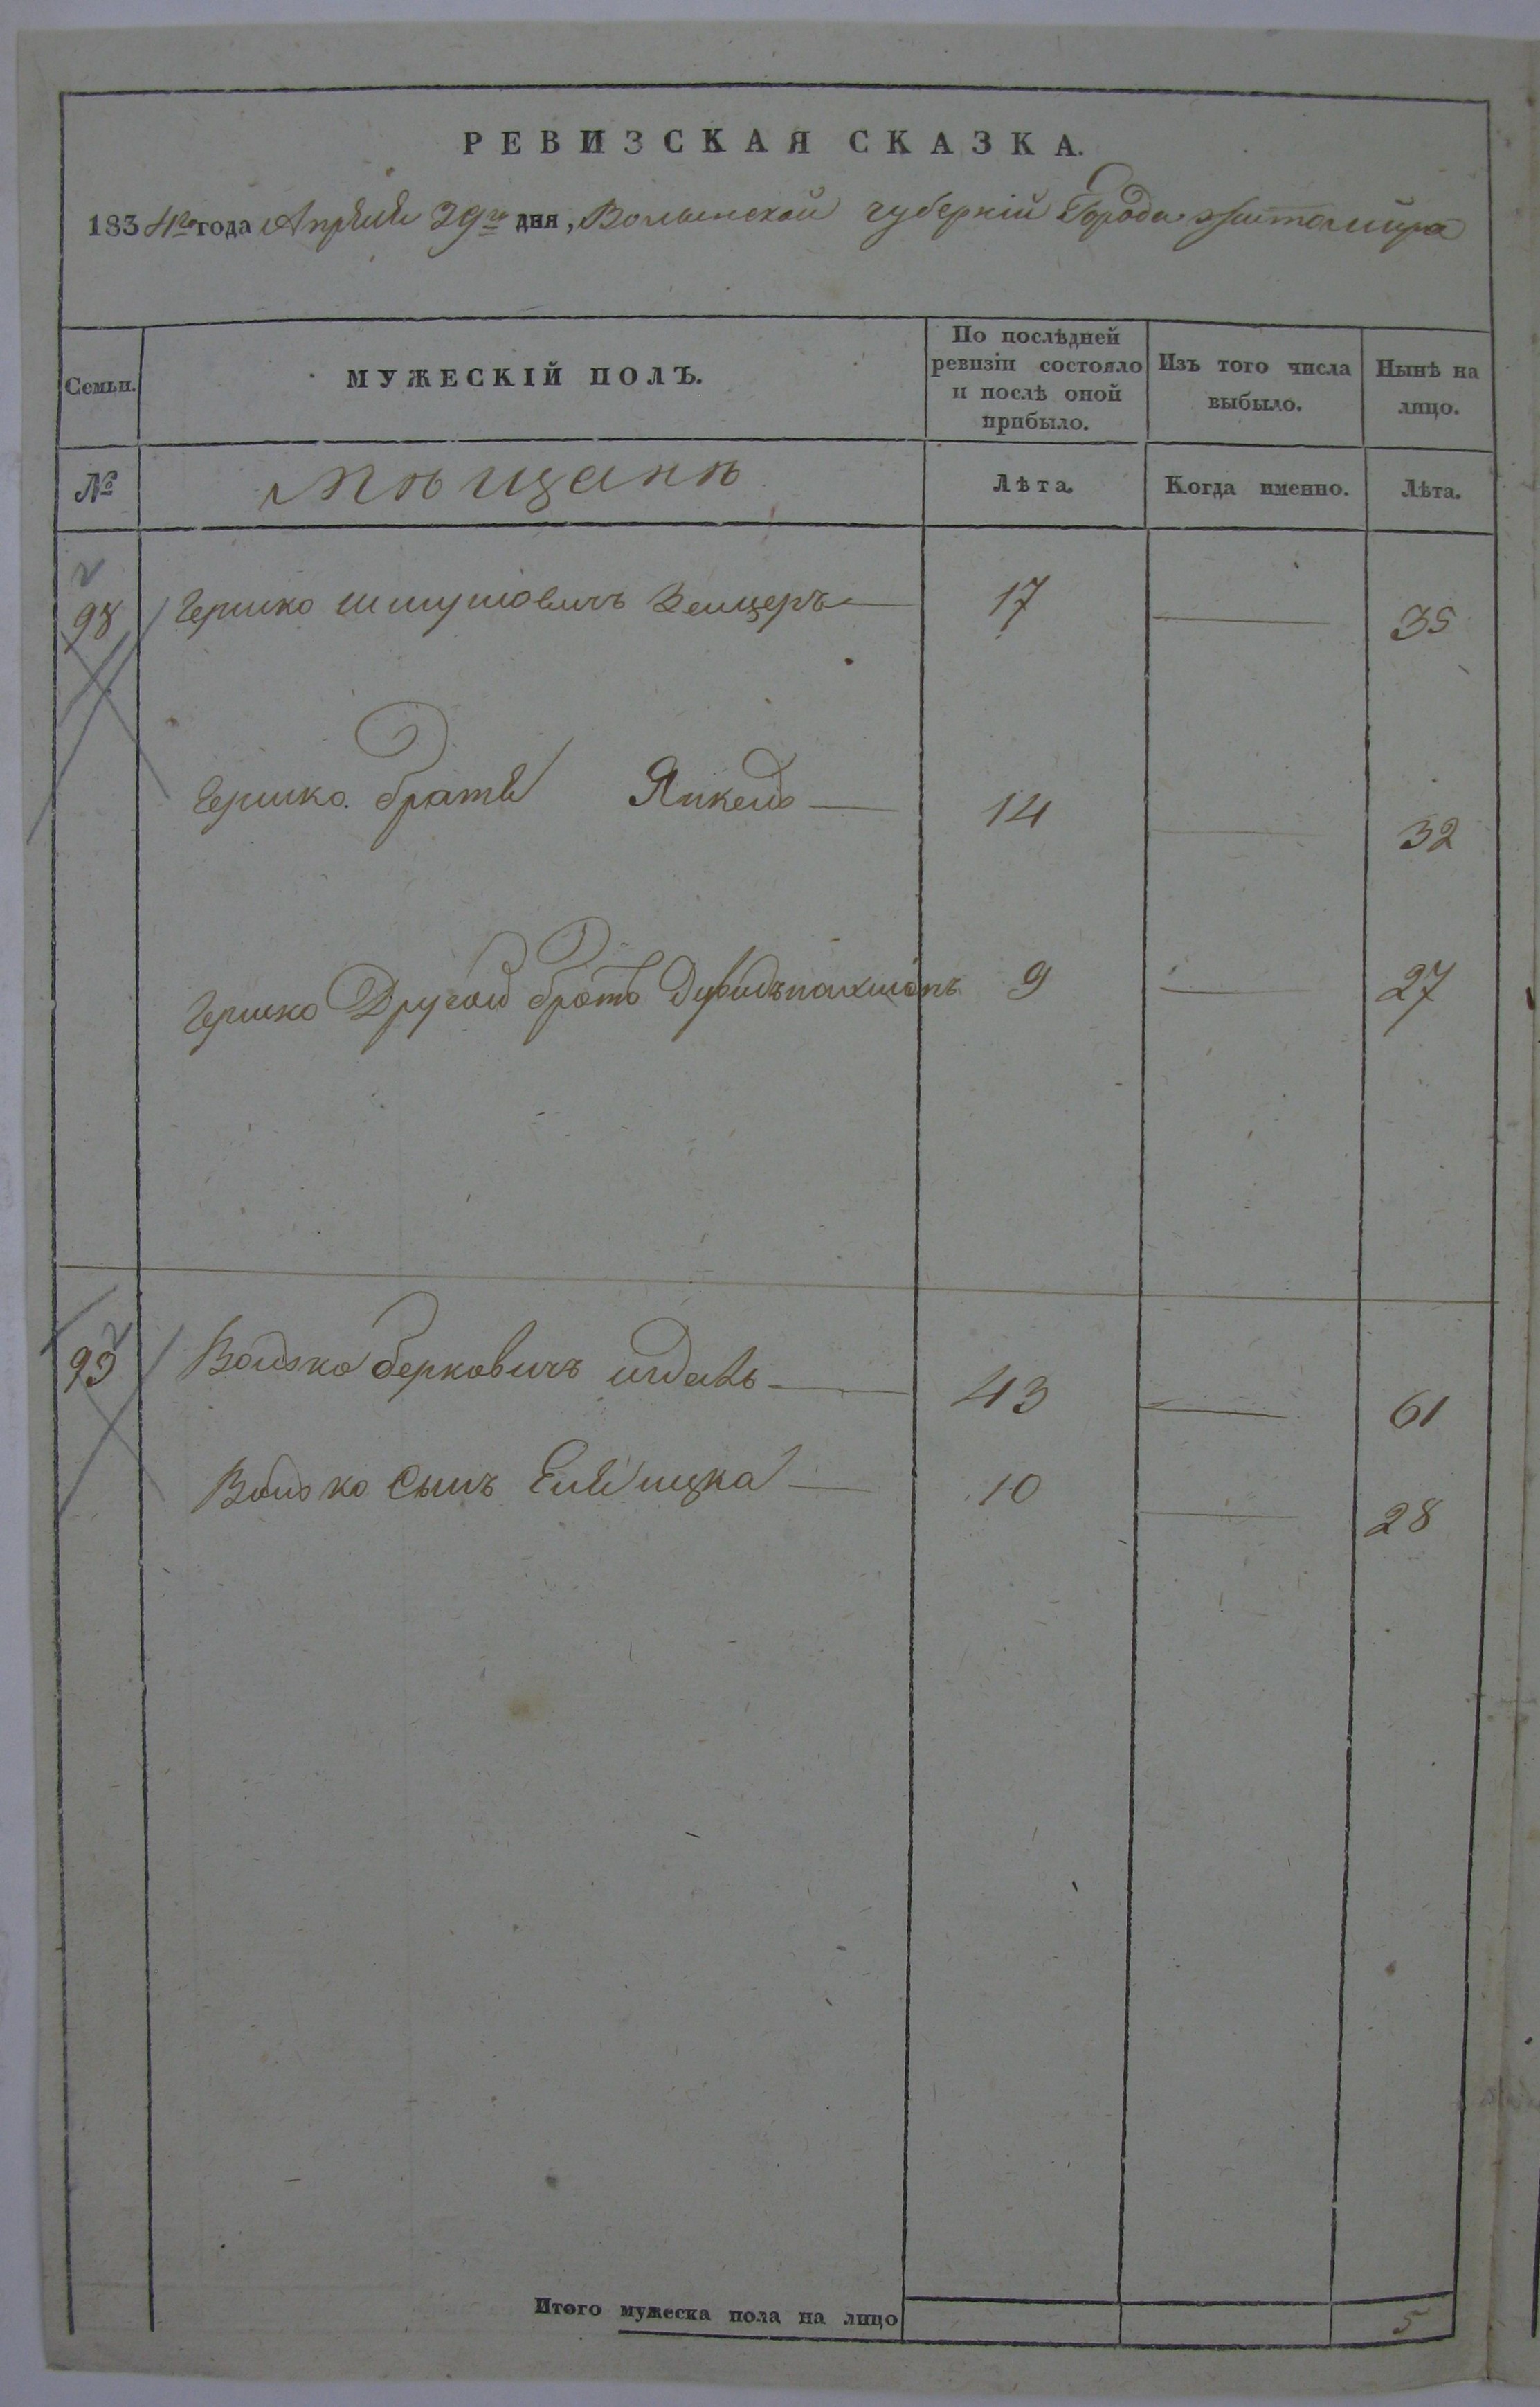 РЕВИЗСКАЯ СКАЗКА.
1834го года Апреля 29го дня, Волынской губерніи Города Житомира
Семьи. МУЖЕСКІЙ ПОЛЪ. По послѣдней ревизіи состояло и послѣ оной прибыло. Изъ того числа выбыло. Нынѣ на лицо.
№ Мѣщанѣ Лѣта. Когда именно. Лѣта.
98 Гершко Шмулѡвичъ 17 35
Гершко братья Янкель 14 32
Гершко Другой братъ 9 27
93 Волько Берковичъ 43 61
Волько Сынъ Ицка 10 28
Итого мужеска пола на лицо 5